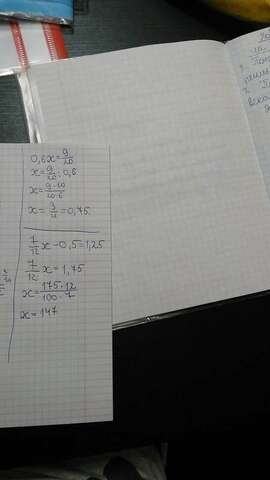 0,6x=9/20
x=9/20:0,6
x=9·10/20·6
x=3/4=0,75
7/12x-0,5=1,25
7/12x=1,75
x=175·12/100·7
x=147